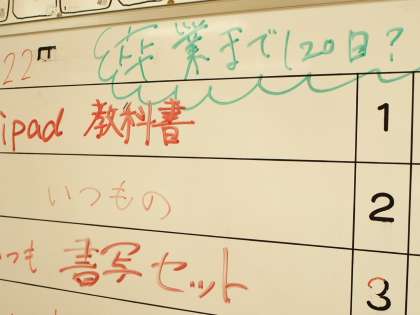 22 卒業まで120日?
ipad 教科書 1
いつもの 2
いつも 書写セット 3